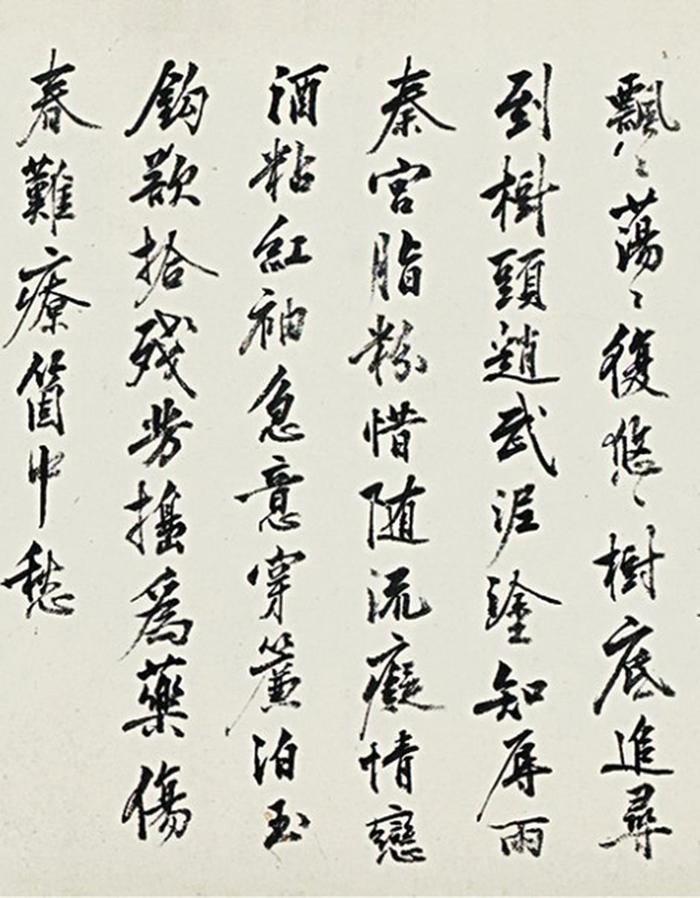 飄〻蕩〻復悠〻樹底追尋
到樹頭趙武泥塗知辱雨
秦宮脂粉惜随流癡情戀
酒粘紅袖急意穿簾泊玉
鈎欲拾殘芳搗爲藥傷
春難療箇中愁